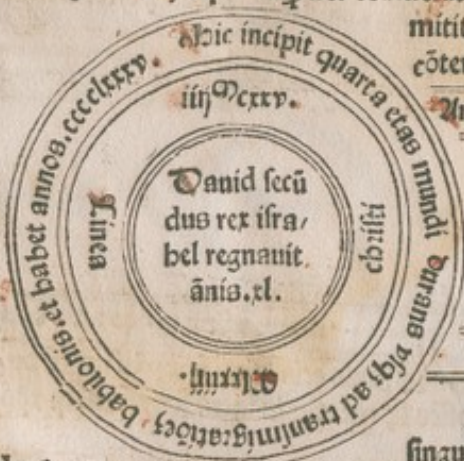 Hic incipit quarta etas mundi durans vsqȝ ad transmigrationē babilonis. et habet annos. cccclxxxv.
iiijᵐcxxv.
Linea
christi
Dauid secū
dus rex isra/
hel regnauit
ānis. xl.
mitit
cōte